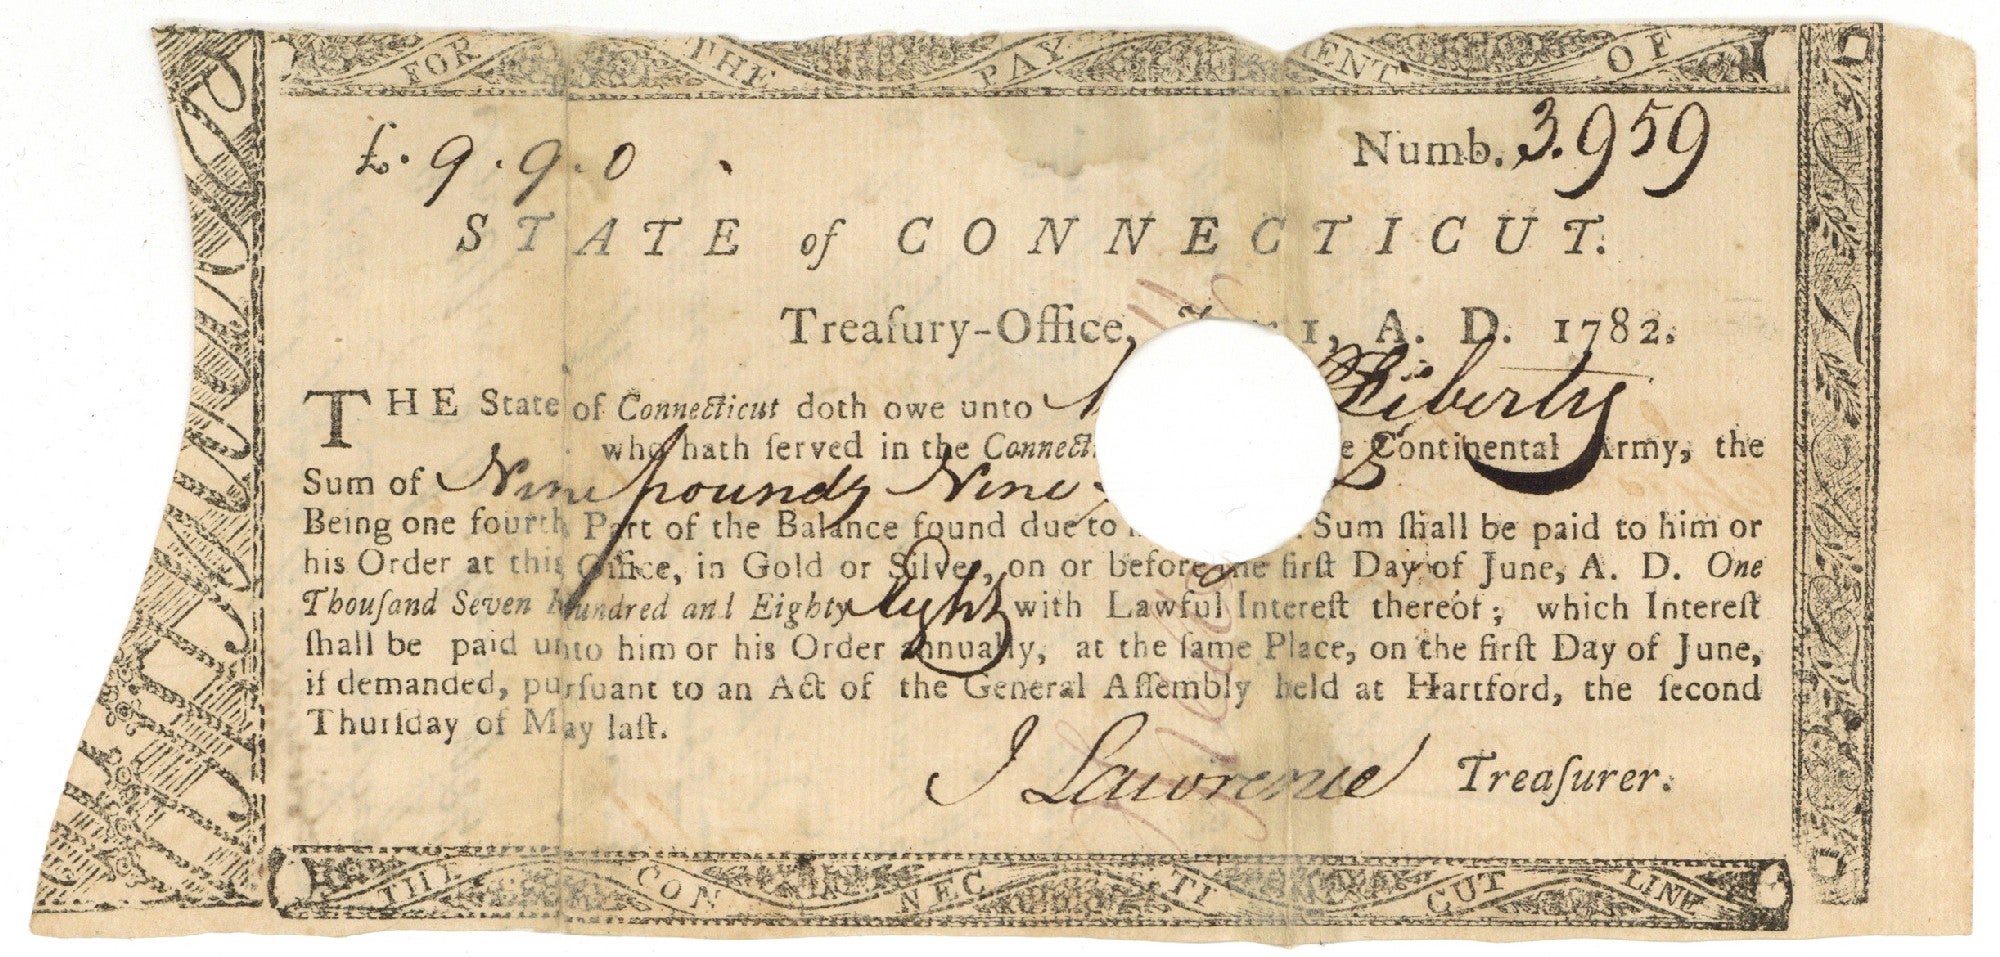 FOR THE PAY ENT OF
£. 9. 9. 0
Numb. 3.959
STATE of CONNECTICUT.
Treaſury-Office, 1, A. D. 1782.
THE State of Connecticut doth owe unto Liberty
who hath ſerved in the Connecti e Continental Army, the
Sum of Nine pounds Nine
Being one fourth Part of the Balance found due to Sum ſhall be paid to him or
his Order at this Office, in Gold or Silver, on or before the firſt Day of June, A. D. One
Thouſand Seven Hundred and Eighty eight with Lawful Intereſt thereof; which Intereſt
ſhall be paid unto him or his Order annually, at the ſame Place, on the firſt Day of June,
if demanded, purſuant to an Act of the General Aſſembly held at Hartford, the ſecond
Thurſday of May laſt.
J Lawrence Treaſurer.
THE CON NEC TI CUT LINE